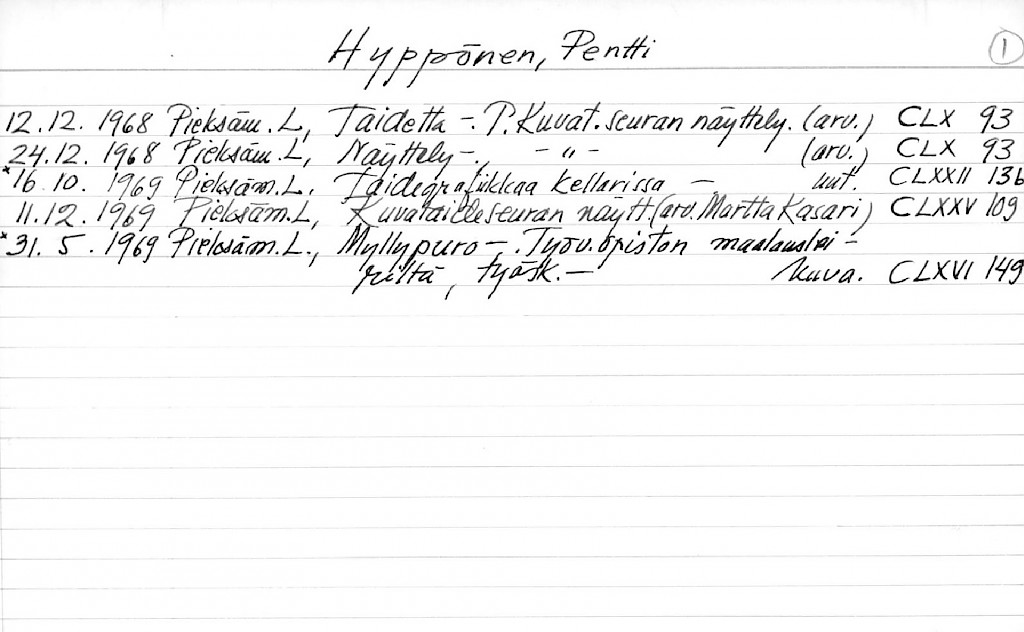 Hyppönen, Pentti 1
12.12. 1968 Pieksäm. L, Taidetta -. P. Kuvat. seuran näyttely. (arv.) CLX 93
24.12. 1968 Pieksäm. L, Näyttely -., - " - (arv.) CLX 93
*16. 10. 1969 Pieksäm. L. Taidegrafiikkaa kellarissa - uut. CLXXII 136
11.12. 1969 Pieksäm. L, Kuvataideseuran näytt. (arv. Martta Kasari) CLXXV 109
*31. 5. 1969 Pieksäm. L., Myllypuro -. Työv. opiston maalauslei-
riltä, työsk. - kuva. CLXVI 149